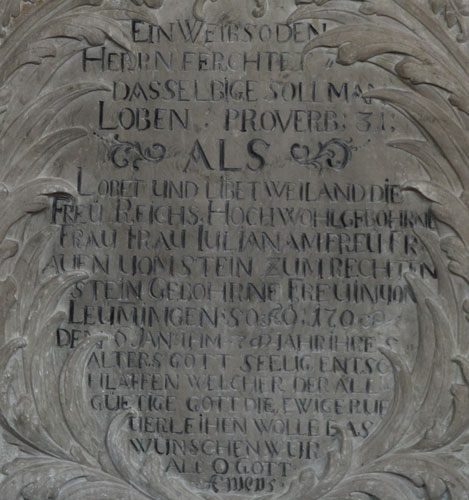 EIN WEIB SO DEN
HERRN FERCHTET
DASSELBIGE SOLL MAN
LOBEN : PROVERB: 31:
ALS
LOBET UND LIBET WEILAND DIE
FREU REICHS HOCHWOHLGEBOHRNE
FRAU FRAU IULIANA M FREU FR
AUEN UOM STEIN ZUM RECHTEN
STEIN GEBOHRNE FREUIN VON
LEUMINGEN SO 170
DEN 6 JAN IHM JAHR IHRES
ALTERS GOTT SEELIG ENTSC
HLAFFEN WELCHER DER ALLE
GUETIGE GOTT DIE EWIGE RUE
UERLEIHEN WOLLE DAS
WUNSCHEN WUR
ALL O GOTT
Amens